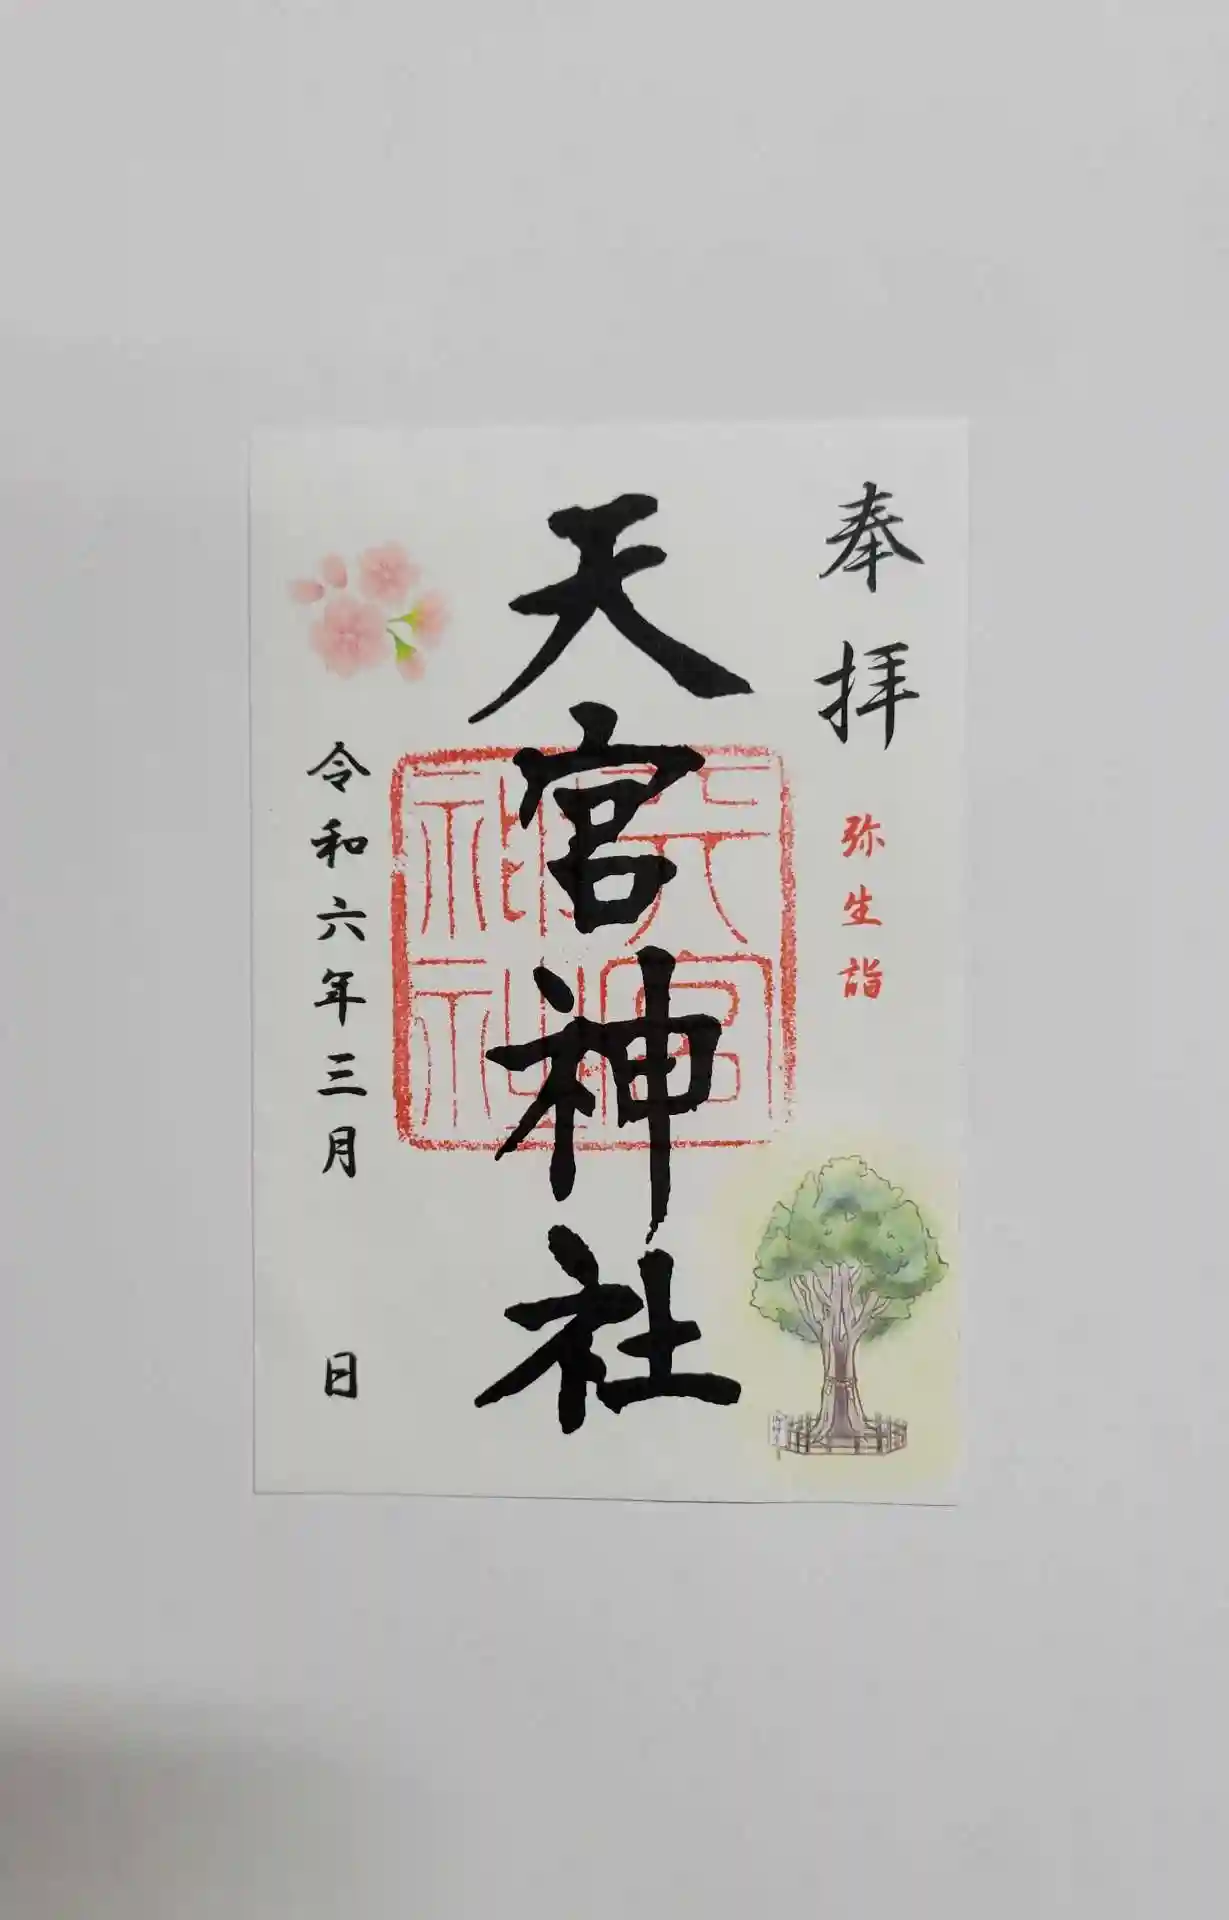 奉拝
弥生詣
天宮神社
天宮神社
令和六年三月 日